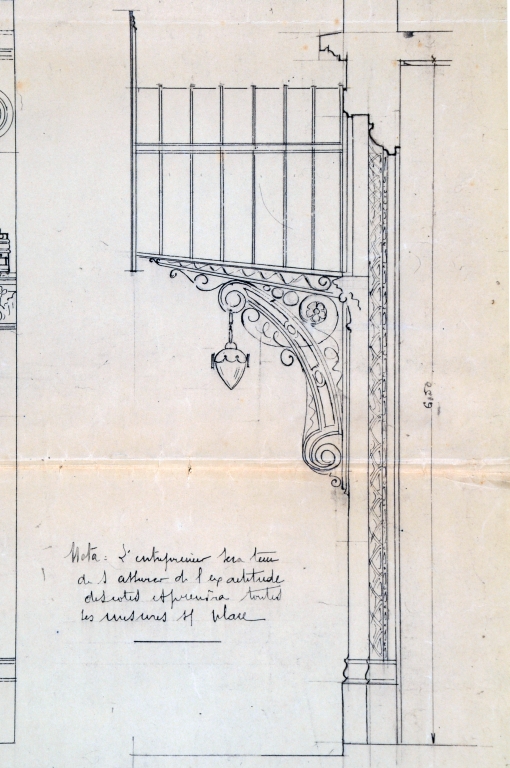 6,50
Nota : L'entrepreneur sera tenu
de s'assurer de l'exactitude
des cotes et prendra toutes
les mesures s/ place